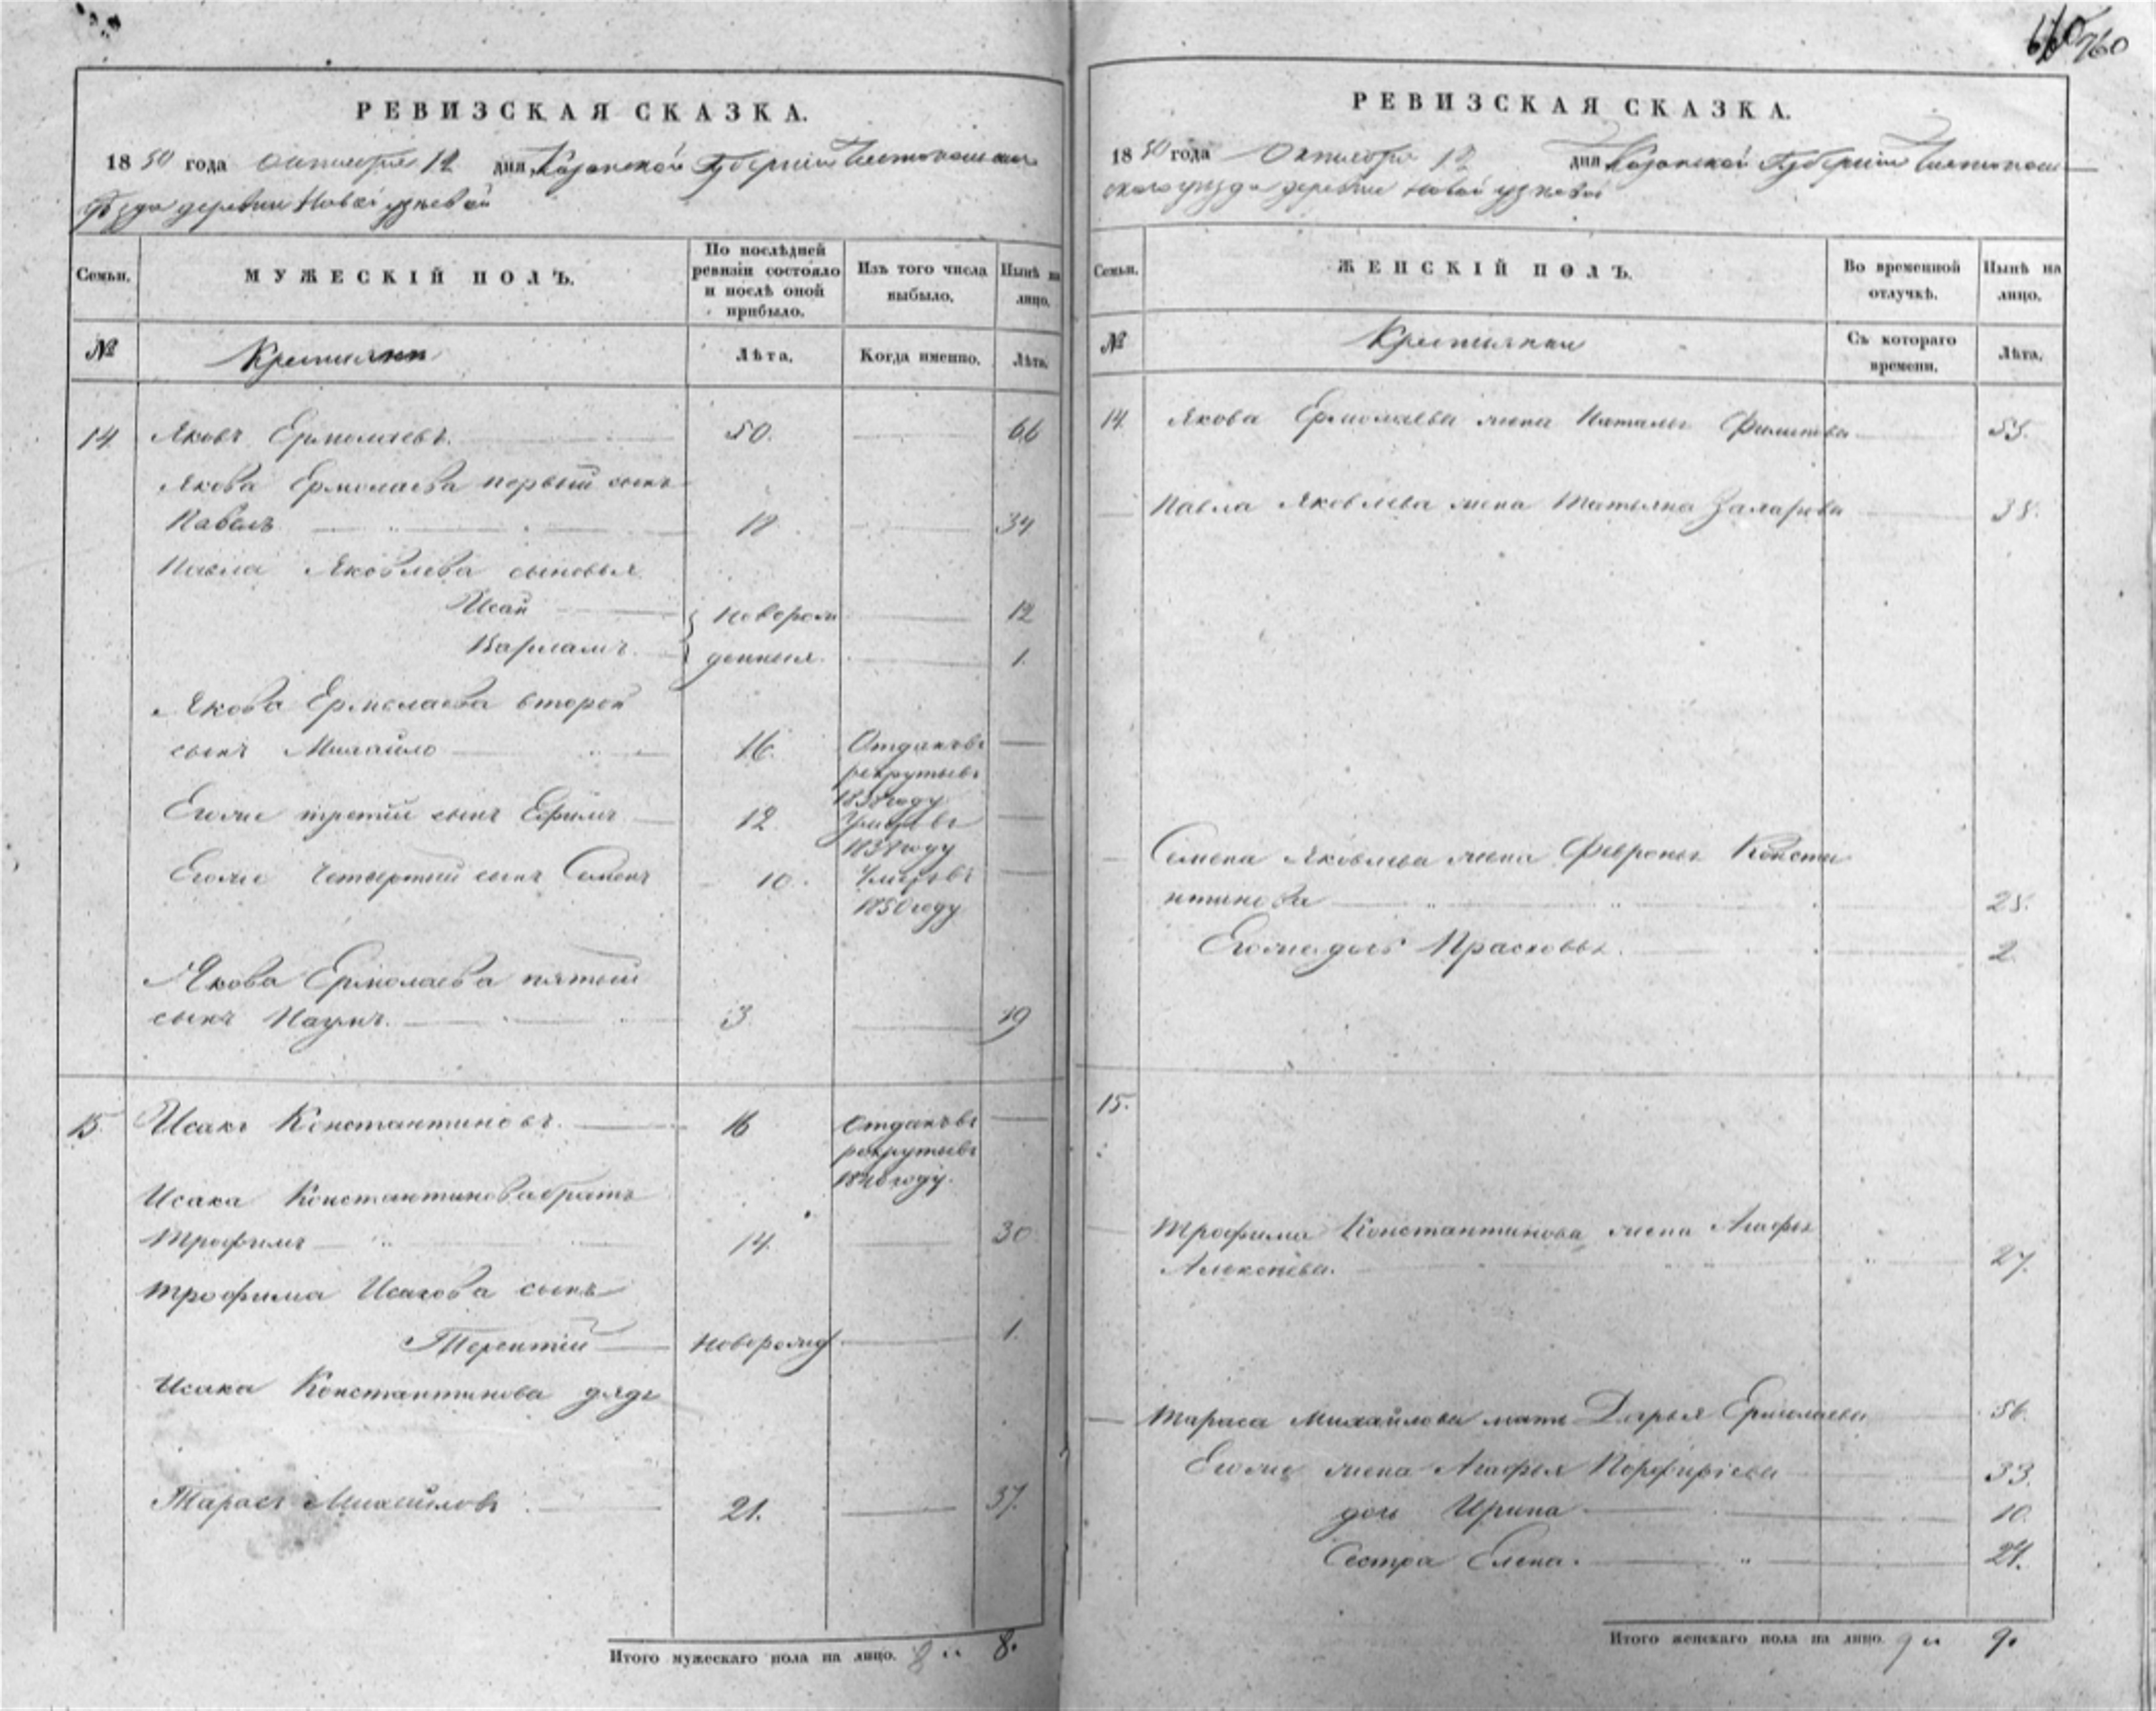 660 760
РЕВИЗСКАЯ СКАЗКА.
1850 года октября 12 дня Казанской Губернии Чистопольскаго
уѣзда деревни Новой узеевой
Семьи.
МУЖЕСКІЙ ПОЛЪ.
По послѣдней ревизіи состояло и послѣ оной прибыло.
Изъ того числа выбыло.
Нынѣ на лицо.
№
Крестьяне
Лѣта.
Когда именно.
Лѣта.
14. Яковъ Ермолаевъ. 50. 66
Якова Ермолаева первый сынъ
Павелъ 18 34
Павла Яковлева сыновья
Исай новорож 12
Варламъ денныя 1.
Якова Ермолаева второй
сынъ Михайло 16. Отданъ въ
рекруты въ
1838 году
Его же третій сынъ Ефимъ 12. Умеръ въ
1838 году
Его же четвертый сынъ Семенъ 10. Умеръ въ
1850 году
Якова Ермолаева пятый
сынъ Наумъ. 3. 19
15 Исакъ Константиновъ. 16 Отданъ въ
рекруты въ
1840 году.
Исака Константинова братъ
Трофимъ 14. 30
Трофима Исакова сынъ
Терентій новорожд 1.
Исака Константинова дядя
Тарасъ Михайловъ 21. 37.
Итого мужескаго пола на лицо. 8 " 8.
РЕВИЗСКАЯ СКАЗКА.
1850 года Октября 12 дня Казанской Губерніи Чистополь
скаго уѣзда деревни Новой узеевой
Семьи.
ЖЕНСКІЙ ПОЛЪ.
Во временной отлучкѣ.
Нынѣ на лицо.
№
Крестьянки
Съ котораго времени.
Лѣта.
14. Якова Ермолаева жена Наталья Филипова 55.
Павла Яковлева жена Татьяна Захарова 38.
Семена Яковлева жена Февронья Конста
нтинова 28.
Его же дочь Прасковья. 2.
15.
Трофима Константинова жена Агафья
Алексѣева. 27.
Тараса Михайлова мать Дарья Ермолаева 56.
Его же жена Агафья Порфирьева 33.
дочь Ирина 10.
Сестра Елена. 24.
Итого женскаго пола на лицо. 9 " 9.